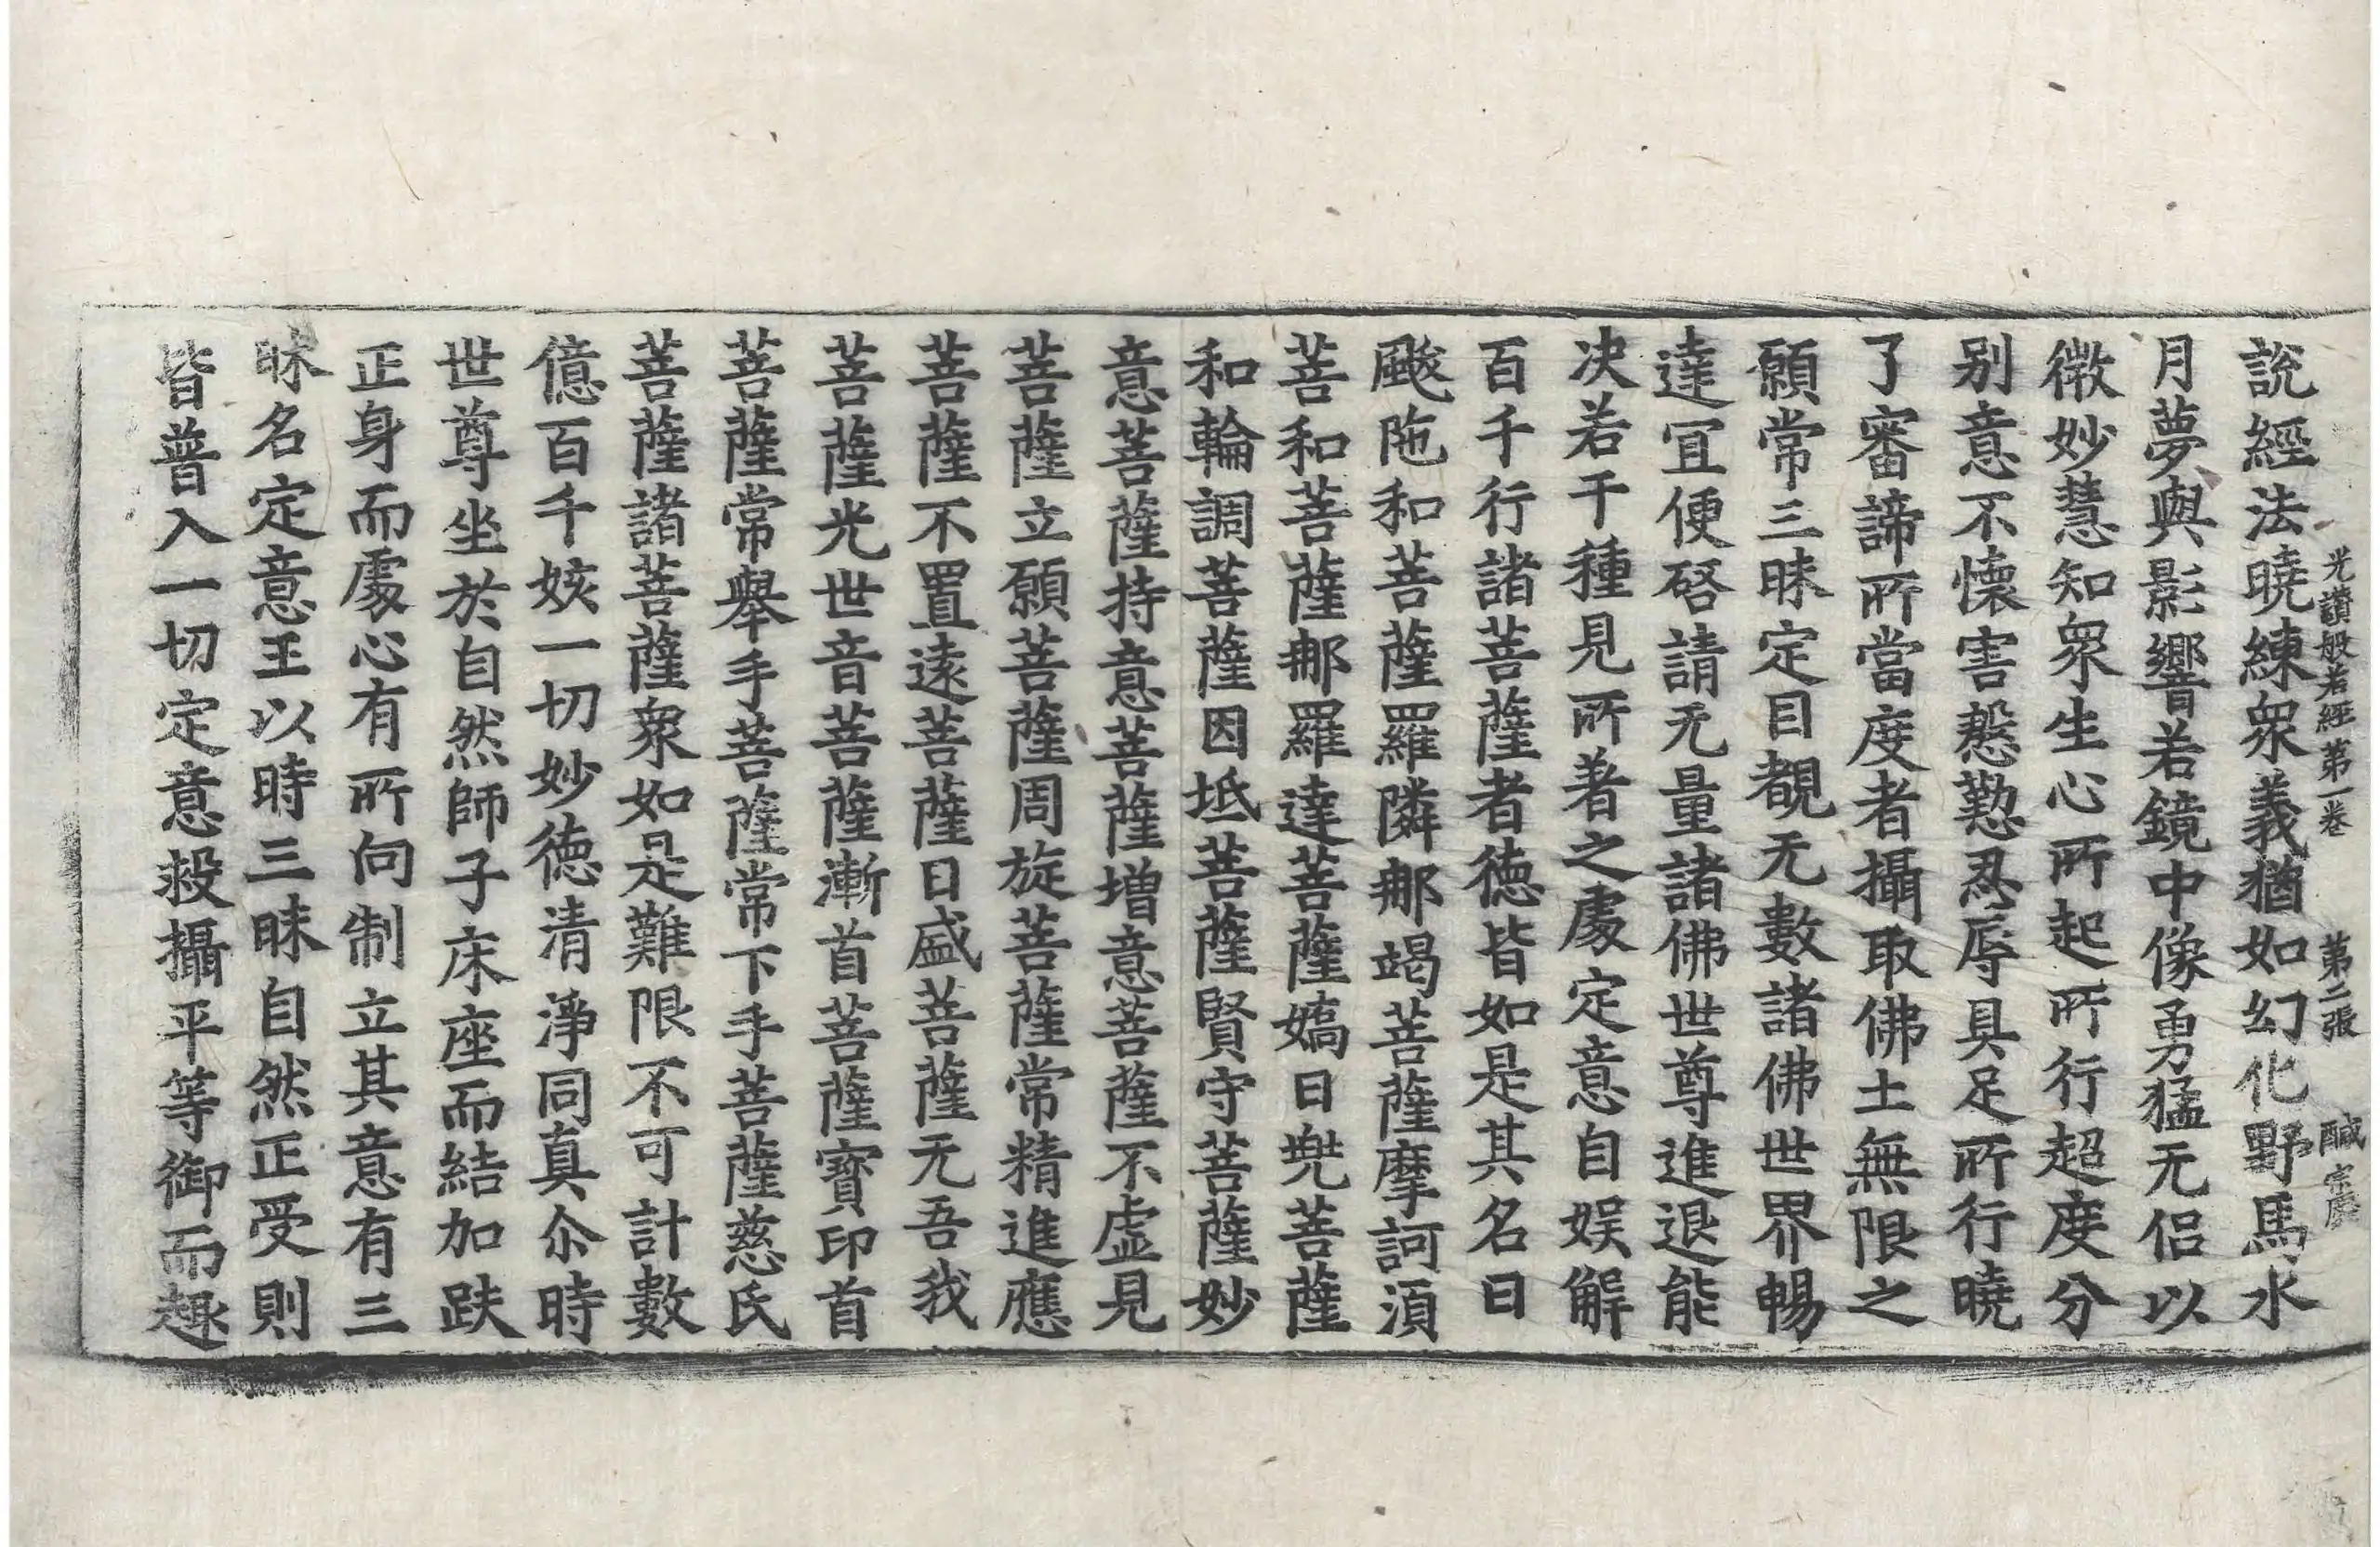 光讃般若經第一卷　第二張　醎　宗慶
說經法曉練衆義猶如幻化野馬水
月夢與影響若鏡中像勇猛无侣以
微妙慧知衆生心所起所行超度分
别意不懷害慇懃忍辱具足所行曉
了審諦所當度者攝取佛土無限之
願常三昧定目覩无數諸佛世界暢
達宜便啓請无量諸佛世尊進退能
决若干種見所著之處定意自娱解
百千行諸菩薩者德皆如是其名曰
颰陁和菩薩羅隣那竭菩薩摩訶湏
菩和菩薩那羅達菩薩嬌日兠菩薩
和輪調菩薩因坻菩薩賢守菩薩妙
意菩薩持意菩薩增意菩薩不虛見
菩薩立願菩薩周旋菩薩常精進應
菩薩不置遠菩薩日盛菩薩无吾我
菩薩光世音菩薩漸首菩薩寳印首
菩薩常舉手菩薩常下手菩薩慈氏
菩薩諸菩薩衆如是難限不可計數
億百千姟一切妙德清淨同真尒時
世尊坐於自然師子床座而結加趺
正身而處心有所向制立其意有三
昧名定意王以時三昧自然正受則
皆普入一切定意救攝平等御而趣